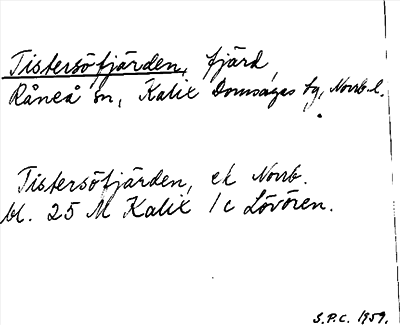 Tistersöfjärden, fjärd,
Råneå sn, Kalix Domsagas tg, Norrb. l.
Tistersöfjärden, ek Norrb.
bl. 25 M Kalix 1c Lövören.
S.P.C. 1959.